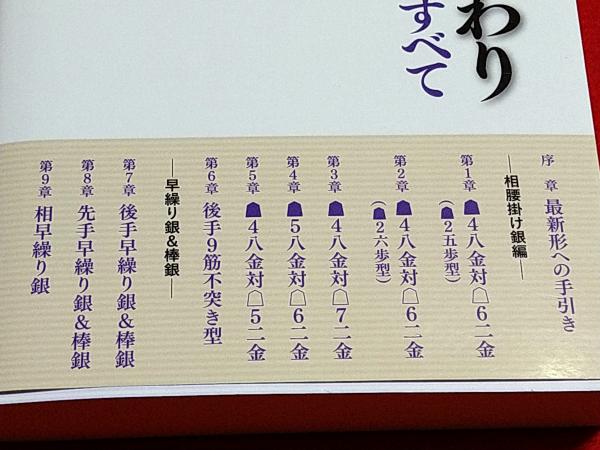 わり
すべて
序章 最新形への手引き
―相腰掛け銀編―
第1章 ☗4八金対☖6二金
(☗2五歩型)
第2章 ☗4八金対☖6二金
(☗2六歩型)
第3章 ☗4八金対☖7二金
第4章 ☗5八金対☖6二金
第5章 ☗4八金対☖5二金
第6章 後手9筋不突き型
―早繰り銀&棒銀―
第7章 後手早繰り銀&棒銀
第8章 先手早繰り銀&棒銀
第9章 相早繰り銀